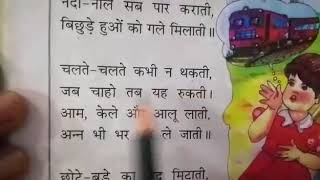 नदी-नाले सब पार कराती,
बिछुड़े हुओं को गले मिलाती॥
चलते-चलते कभी न थकती,
जब चाहो तब यह रुकती।
आम, केले औ आलू लाती,
अन्न भी भर ले जाती॥
छोटे-बड़े का मिटाती,